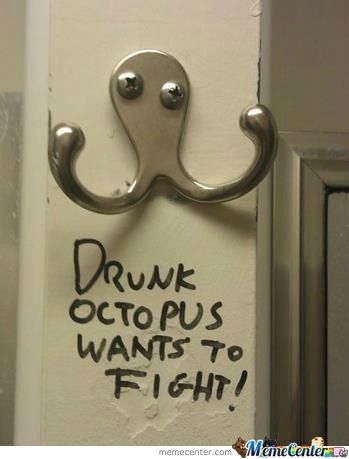 DRUNK
OCTOPUS
WANTS TO
FIGHT!
memecenter.com MemeCenter